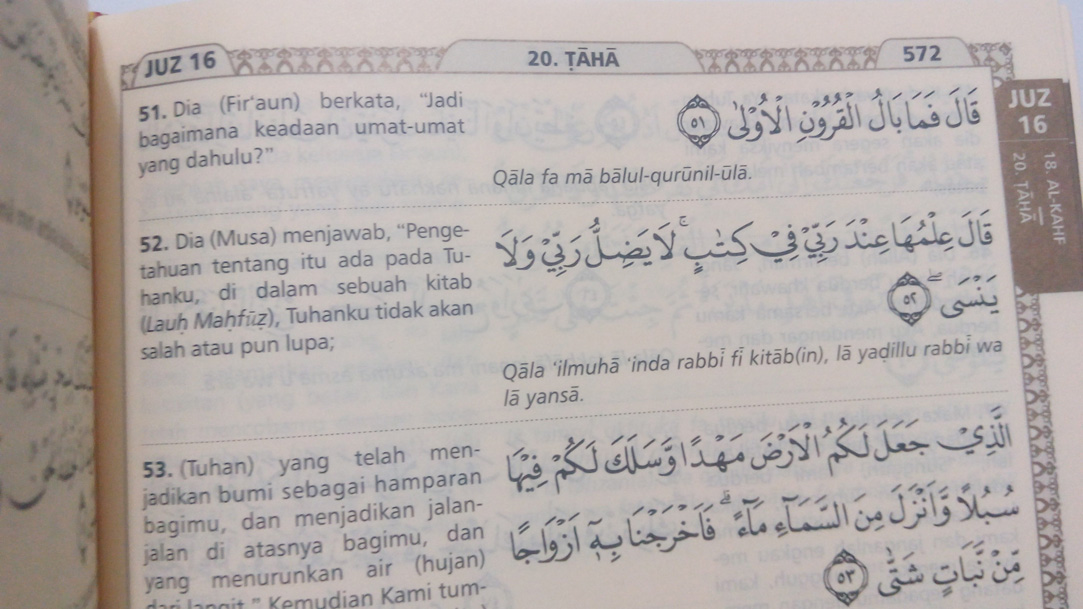 JUZ 16
20. ṬĀHĀ
572
51. Dia (Fir'aun) berkata, "Jadi
bagaimana keadaan umat-umat
yang dahulu?"
قَالَ فَمَا بَالُ الْقُرُوْنِ الْاُوْلٰى ٥١
Qāla fa mā bālul-qurūnil-ūlā.
52. Dia (Musa) menjawab, "Penge-
tahuan tentang itu ada pada Tu-
hanku, di dalam sebuah kitab
(Lauḥ Maḥfūẓ), Tuhanku tidak akan
salah atau pun lupa;
قَالَ عِلْمُهَا عِنْدَ رَبِّيْ فِيْ كِتٰبٍۚ لَا يَضِلُّ رَبِّيْ وَلَا
يَنْسَىۖ ٥٢
Qāla 'ilmuhā 'inda rabbī fī kitāb(in), lā yaḍillu rabbī wa
lā yansā.
53. (Tuhan) yang telah men-
jadikan bumi sebagai hamparan
bagimu, dan menjadikan jalan-
jalan di atasnya bagimu, dan
yang menurunkan air (hujan)
dari langit." Kemudian Kami tum-
الَّذِيْ جَعَلَ لَكُمُ الْاَرْضَ مَهْدًا وَّسَلَكَ لَكُمْ فِيْهَا
سُبُلًا وَّاَنْزَلَ مِنَ السَّمَاۤءِ مَاۤءًۗ فَاَخْرَجْنَا بِهٖٓ اَزْوَاجًا
مِّنْ نَّبَاتٍ شَتّٰى ٥٣
JUZ
16
18. AL-KAHF
20. ṬĀHĀ